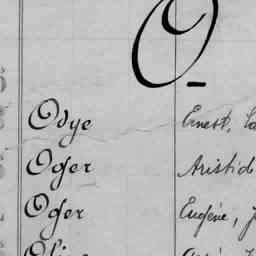 O
Odye Ernest,
Oger Aristid
Oger Eugène, J